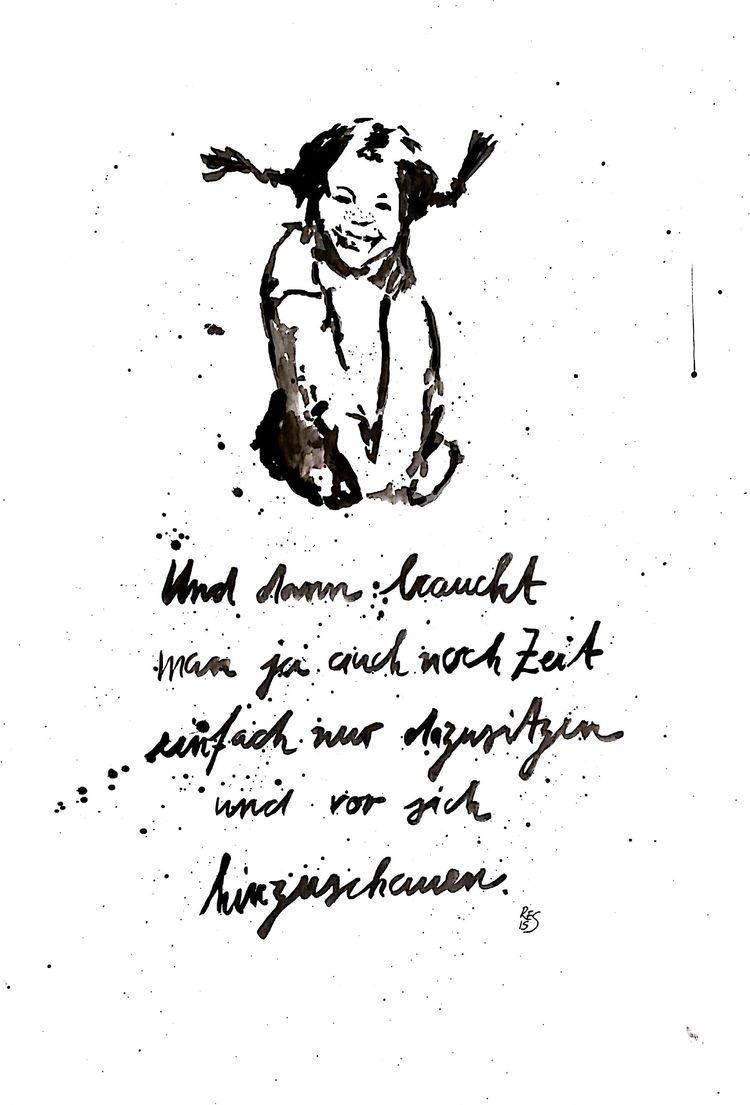 Und dann braucht
man ja auch noch Zeit
einfach nur dazusitzen
und vor sich
hinzuschauen.
RES
15